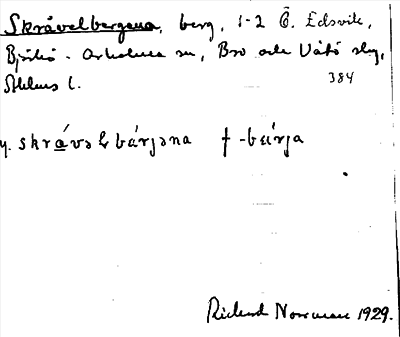 Skråvelbergena, berg, 1-2 Ö. Edsvik,
Björkö-Arholma sn, Bro och Vätö slg,
Sthlms l. 384
y. skrávəḷbárjəna † -bárja
Rickard Norrman 1929.